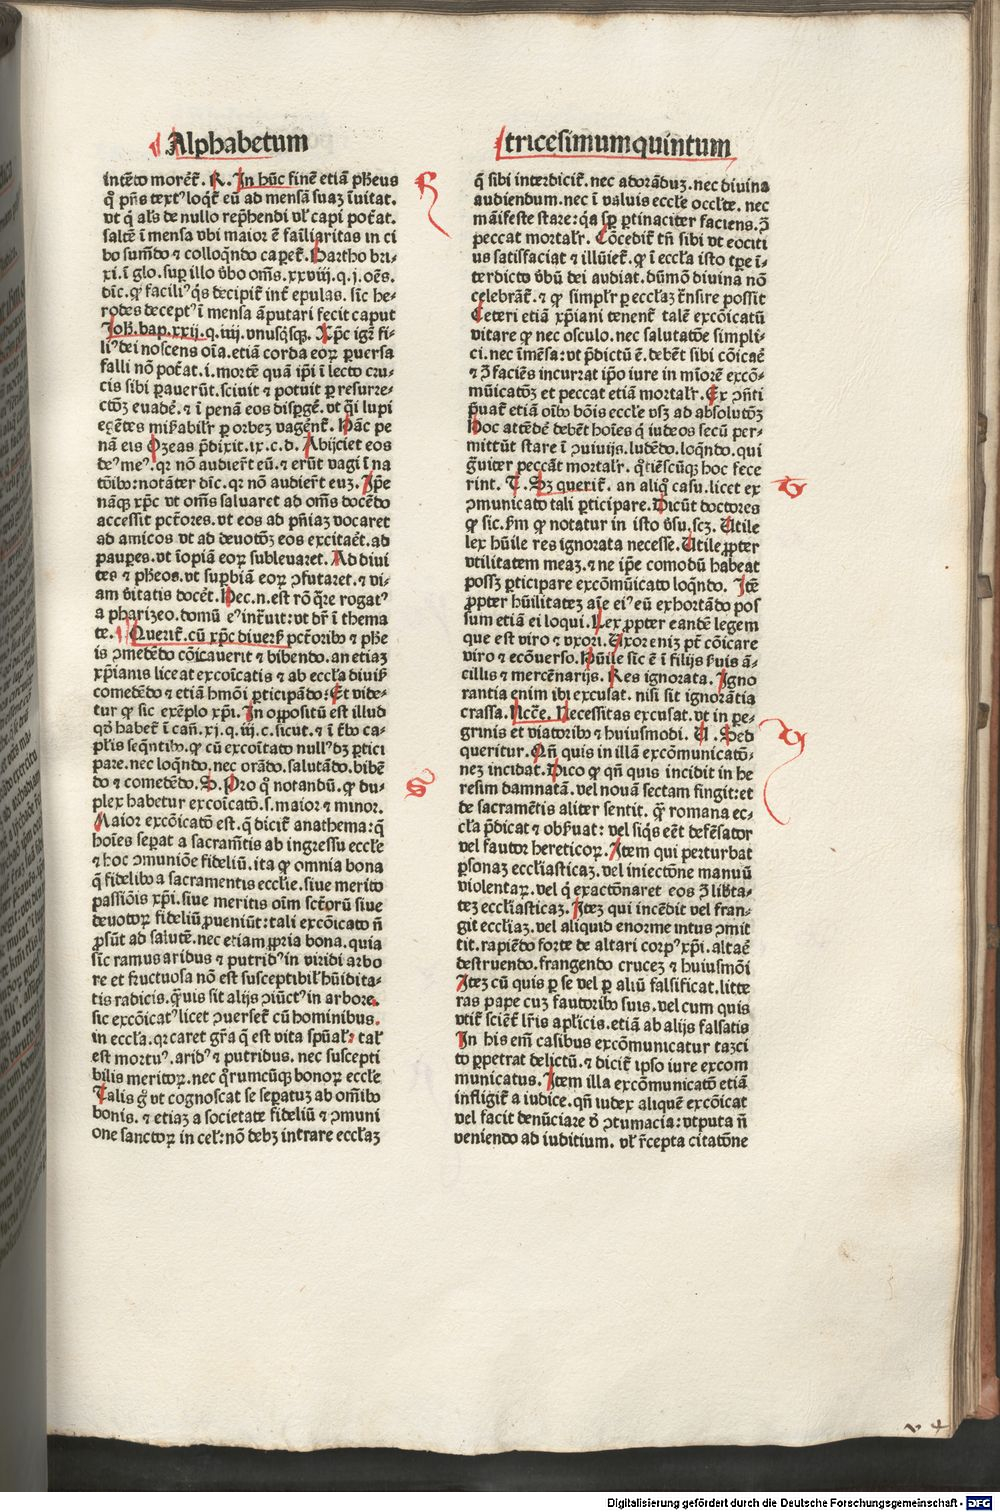 Alphabetum
tricesimumquintum
intēto morēt̄. R. In hūc finē etiā pħeus
q̊ pn̄s text⁹ loqt̄ eū ad mensā suaꝫ īuitat.
vt q̇ al̓s de nullo rep̄hendi vl̓ capi poťat.
saltē ī mensa vbi maior ē fai̅liaritas in ci
bo sum̄do ⁊ colloq̄ndo caperēt̄. Bartho bri⸗
xi. ī glo. suꝑ illo v̓bo om̄s. xxviij. q. j. oēs.
dīc. ꝙ facili⁹ q̇s decipit̄ int̓ epulas. sīc he⸗
rodes decept⁹ ī mensa āputari fecit caput
Joħ. bap. xxij. q. iiij. vnusq̇sqꝫ. Xp̄c igit̄ fi⸗
li⁹ dei noscens oīa. etiā corda eoꝝ ꝑuersa
falli nō poťat. i. mortē quā ip̄i ī lecto cru⸗
cis sibi ꝑauerūt. sciuit ⁊ potuit ꝑ resurre⸗
ctōꝫ euadē. ⁊ ī penā eos disꝑgē. vt q̇i lupi
egētes mi̓abilir̓ ꝑ orbeꝫ vagēnt̄. Hāc pe
nā eis Ozeas p̄dixit. ix. c. d. Abijciet eos
de⁹ me⁹. qꝛ nō audieřt eū. ⁊ erūt vagi ī na
tōib⁹: notāter dīc. qꝛ nō audieřt euꝫ. Ip̄e
nāqꝫ xp̄c vt om̄s saluaret ad om̄s docēdo
accessit pctōres. vt eos ad pn̄iaꝫ vocaret
ad amicos vt ad deuotōꝫ eos excitaēt. ad
pauꝑes. vt īopiā eoꝝ subleuaret. Ad diui
tes ⁊ pħeos. vt suꝑbiā eoꝝ ↄfutaret. ⁊ vi⸗
am v̓itatis docēt. Hec. n. est rō q̄re rogat⁹
a pharizeo. domū e⁹ int̓uit: vt dr̄ ī thema
te. Querit̄. cū xp̄c diuersꝭ pctōrib⁹ ⁊ phe
is ↄmedēdo cōicauerit ⁊ bibendo. an etiaꝫ
xp̄ianis liceat excoīcatis ⁊ ab eccl̓a diuisꝭ
comedēdo ⁊ etiā hmōi ꝑticipādo: Et vide⸗
tur ꝙ sic exēplo xp̄i. In oppositū est illud
qd̓ habet̄ ī can̄. xj. q. iij. c. sicut. ⁊ ī t̓b⁹ ca⸗
pl̓is seq̄ntib⁹. ꝙ cū excoīcato null⁹ dꝫ ꝑtici
pare. nec loq̄ndo. nec orādo. salutādo. bibē
do ⁊ comedēdo. S. Pro q̊ notandū. ꝙ du⸗
plex habetur excoīcatō. s. maior ⁊ minor.
Maior excōicatō est. q̄ dicit̄ anathema: q̄
hoīes seꝑat a sacram̄tis ab ingressu eccl̓e
⁊ hoc ↄmuniōe fideliū. ita ꝙ omnia bona
q̄ fidelib⁹ a sacramentis eccl̓ie. siue merito
passiōis xp̄i. siue meritis oīm sctōrū siue
deuotoꝝ fideliū ꝓueniūt: tali excōicato n̄
ꝓsūt ad salutē. nec etiam ꝓpria bona. quia
sīc ramus aridus ⁊ putrid⁹ in viridi arbo
re et fructuosa nō est susceptibil̓ hūidita⸗
tis radicis. q̄uis sit alijs ↄiūct⁹ in arbore.
sic excōicat⁹ licet ↄuerset̄ cū hominibus.
in eccl̓a. qꝛ caret gr̄a q̄ est vita sp̄ual̓: tal̓
est mortu⁹. arid⁹ ⁊ putridus. nec suscepti
bilis meritoꝝ. nec q̄rumcūqꝫ bonoꝝ eccl̓e
Talis g̊ vt cognoscat se seꝑatuꝫ ab om̄ib⁹
bonis. ⁊ etiaꝫ a societate fideliū ⁊ ↄmuni
one sanctoꝝ in cel̓: nō debꝫ intrare eccl̓aꝫ
q̄ sibi interdicit̄. nec adorādus. nec diuina
audiendum. nec ī valuis eccl̓e occl̓te. nec
māifeste stare: qꝛ sꝑ ꝑtinaciter faciens. ↄ̄
peccat mortalr̓. Cōcedit̄ tn̄ sibi vt eociti
us satisfaciat ⁊ illūiet̄. ꝙ ī eccl̓a isto tꝑe ī⸗
terdicto v̓bū dei audiat. dūmō diuina nō
celebrāt̄. ⁊ ꝙ simpl̓r ꝑ eccl̓aꝫ trn̄sire possit
Ceteri etiā xp̄iani tenent̄ talē excōicatū
vitare ꝙ nec osculo. nec salutatōe simpli⸗
ci. nec īmēsa: vt p̄dictū ē. debēt sibi cōicaē
⁊ ↄ̄ faciēs incurrat ip̄o iure in mīorē excō⸗
mūicatōꝫ et peccat etiā mortalr̓. Ex ↄn̄ti
p̄uat̄ etiā oīb⁹ bōis eccl̓e vsqꝫ ad absolutōꝫ
Hoc attēdē debēt hoīes q̇ iudeos secū per⸗
mittūt stare ī ↄuiuijs. ludēdo. loq̄ndo. qui
g̊uiter peccāt mortalr̓. q̊tiēscūqꝫ hoc fece
rint. T. Sꝫ querit̄. an aliq̊ casu. licet ex
ↄmunicato tali ꝑticipare. Dicūt doctores
ꝙ sic. ẜm ꝙ notatur in isto v̓su. scꝫ. Utile
lex hūile res ignorata necesse. Utile ꝓpter
vtilitatem meaꝫ. ⁊ ne ip̄e comodū habeat
possꝫ ꝑticipare excōmūicato loq̄ndo. Itē
ꝓpter hūilitateꝫ aīe ei⁹ eū exhortādo pos
sum etiā ei loqui. Lex ꝓpter eandē legem
que est viro ⁊ vxori. Uxor eniꝫ pt̄ cōicare
viro ⁊ ecōuerso. Hūile sīc ē ī filijs ẜuis ā⸗
cillis ⁊ mercēnarijs. Res ignorata. Igno
rantia enim ibi excusat. nisi sit ignorātia
crassa. Ncc̄e. Necessitas excusat. vt in ꝑe⸗
grinis et viatorib⁹ ⁊ huiusmodi. U. Sed
queritur. Qn̄ quis in illā excōmunicatō⸗
neꝫ incidat. Dico ꝙ qn̄ quis incidit in he
resim damnatā. vel nouā sectam fingit: et
de sacramētis aliter sentit. q̄ romana ec⸗
cl̓a p̄dicat ⁊ obẜuat: vel siq̇s eēt defēsator
vel fautor hereticoꝝ. Item qui perturbat
ꝑsonaꝫ eccl̓iasticaꝫ. vel iniectōne manuū
violentaꝝ. vel q̇ exactōnaret eos ↄ̄ lib̓ta⸗
teꝫ eccl̓iasticaꝫ. Iteꝫ qui incēdit vel fran⸗
git eccl̓iaꝫ. vel aliquid enorme intus ↄmit
tit. rapiēdo forte de altari corp⁹ xp̄i. altaē
destruendo. frangendo cruceꝫ ⁊ huiusmōi
Iteꝫ cū quis ꝑ se vel ꝑ aliū falsificat. litte
ras pape cuꝫ fautorib⁹ suis. vel cum quis
vtit̄ sciēt̓ lr̄is apl̓icis. etiā ab alijs falsatis
In his em̄ casibus excōmunicatur taꝫci
to ꝑpetrat delictū. ⁊ dicit̄ ipso iure excom
municatus. Item illa excōmunicatō etiā
infligit̄ a iudice. qn̄ iudex aliquē excōicat
vel facit denūciare ꝓ ↄtumacia: vtputa n̄
veniendo ad iuditium. vl̓ r̄cepta citatōne